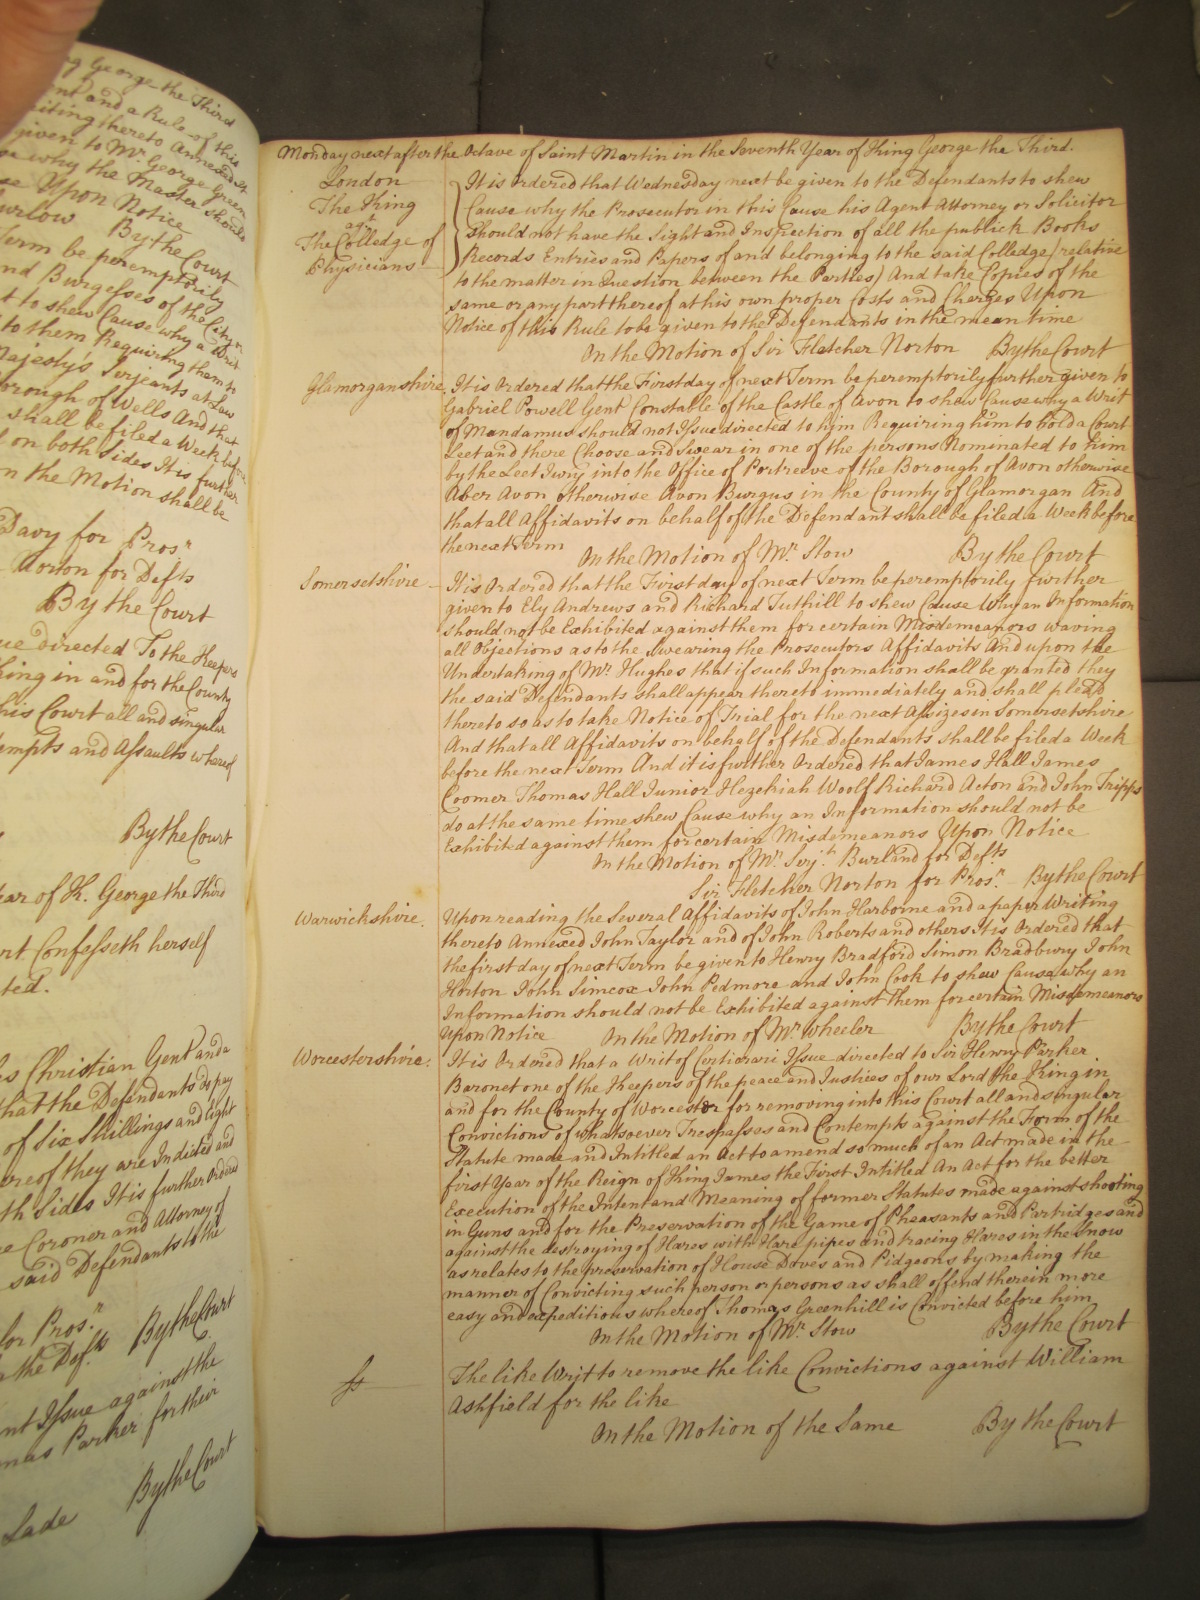 ng George the Third
ent and a Rule of this
iting thereto Annexed It
given to Mr. George Green
why the Master should
se Upon Notice
urlow By the Court
Term be peremptorily
nd Burgesses of the City
t to shew Cause why a Writ
to them Requiring them to
Majesty's Serjeants at Law
orough of Wells And that
shall be filed a Week before
on both sides It is further
n the Motion shall be
Davy for Prosr.
Norton for Defts
By the Court
ue directed To the Keepers
King in and for the County
his Court all and singular
empts and Assaults whereof
By the Court
ear of K. George the Third
rt Confesseth herself
ted.
es Christian Gent and a
that the Defendants do pay
of Six Shillings and Eight
ereof they are Indicted and
th Sides It is further Ordered
e Coroner and Attorney of
said Defendants to the
for Prosr.
the Defts. By the Court
nt Issue against the
mas Parker for their
By the Court
Lade
Monday next after the Octave of Saint Martin in the Seventh Year of King George the Third.
London
The King
agt
The Colledge of
Physicians
It is Ordered that Wednesday next be given to the Defendants to shew
Cause why the Prosecutor in this Cause his Agent Attorney or Solicitor
should not have the Sight and Inspection of all the publick Books
Records Entries and Papers of and belonging to the said Colledge (relative
to the matter in Question between the Parties) And take Copies of the
same or any part thereof at his own proper Costs and Charges Upon
Notice of this Rule to be given to the Defendants in the mean time
On the Motion of Sir Fletcher Norton By the Court
Glamorganshire. It is Ordered that the First day of next Term be peremptorily further given to
Gabriel Powell Gent Constable of the Castle of Avon to shew Cause why a Writ
of Mandamus should not Issue directed to him Requiring him to hold a Court
Leet and there Choose and Swear in one of the persons Nominated to him
by the Leet Jury into the Office of Portreeve of the Borough of Avon otherwise
Aber Avon otherwise Avon Burgus in the County of Glamorgan And
that all Affidavits on behalf of the Defendant shall be filed a Week before
the next Term On the Motion of Mr. Stow By the Court
Somersetshire It is Ordered that the First day of next Term be peremptorily further
given to Ely Andrews and Richard Tuthill to shew Cause Why an Information
should not be Exhibited against them for certain Misdemeanors waving
all Objections as to the swearing the Prosecutors Affidavits And upon the
Undertaking of Mr. Hughes that if such Information shall be granted they
the said Defendants shall appear thereto immediately and shall plead
thereto so as to take Notice of Trial for the next Assizes in Somersetshire
And that all Affidavits on behalf of the Defendants shall be filed a Week
before the next Term And it is further Ordered that James Hall James
Coomer Thomas Hall Junior Hezekiah Woolf Richard Acton and John Tripps
do at the same time shew Cause why an Information should not be
Exhibited against them for certain Misdemeanors Upon Notice
On the Motion of Mr. Serjt. Burland for Defts
Sir Fletcher Norton for Prosr. By the Court
Warwickshire. Upon reading the Several Affidavits of John Harborne and a paper Writing
thereto Annexed John Taylor and of John Roberts and others It is Ordered that
the first day of next Term be given to Henry Bradford Simon Bradbury John
Horton John Simcox John Pedmore and John Cook to shew Cause why an
Information should not be Exhibited against them for certain Misdemeanors
Upon Notice On the Motion of Mr. Wheeler By the Court
Worcestershire. It is Ordered that a Writ of Certiorari Issue directed to Sir Henry Parker
Baronet one of the Keepers of the peace and Justices of our Lord the King in
and for the County of Worcester for removing into this Court all and singular
Convictions of whatsoever Trespasses and Contempts against the Form of the
Statute made and Intitled an Act to amend so much of an Act made in the
first Year of the Reign of King James the First Intitled An Act for the better
Execution of the Intent and Meaning of former Statutes made against shooting
in Guns and for the Preservation of the Game of Pheasants and Partridges and
against the destroying of Hares with Hare pipes and tracing Hares in the Snow
as relates to the preservation of House Doves and Pidgeons by making the
manner of Convicting such person or persons as shall offend therein more
easy and expeditious whereof Thomas Greenhill is Convicted before him
On the Motion of Mr. Stow By the Court
The like Writ to remove the like Convictions against William
Ashfield for the like
On the Motion of the Same By the Court